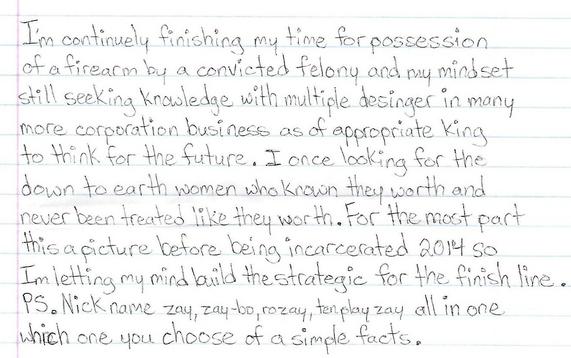 I'm continuely finishing my time for possession
of a firearm by a convicted felony and my mindset
still seeking knowledge with multiple desinger in many
more corporation business as of appropriate king
to think for the future. I once looking for the
down to earth women who known they worth and
never been treated like they worth. For the most part
this a picture before being incarcerated 2014 so
I'm letting my mind build the strategic for the finish line.
PS. Nick name zay, zay-bo, rozay, tenplay zay all in one
which one you choose of a simple facts.